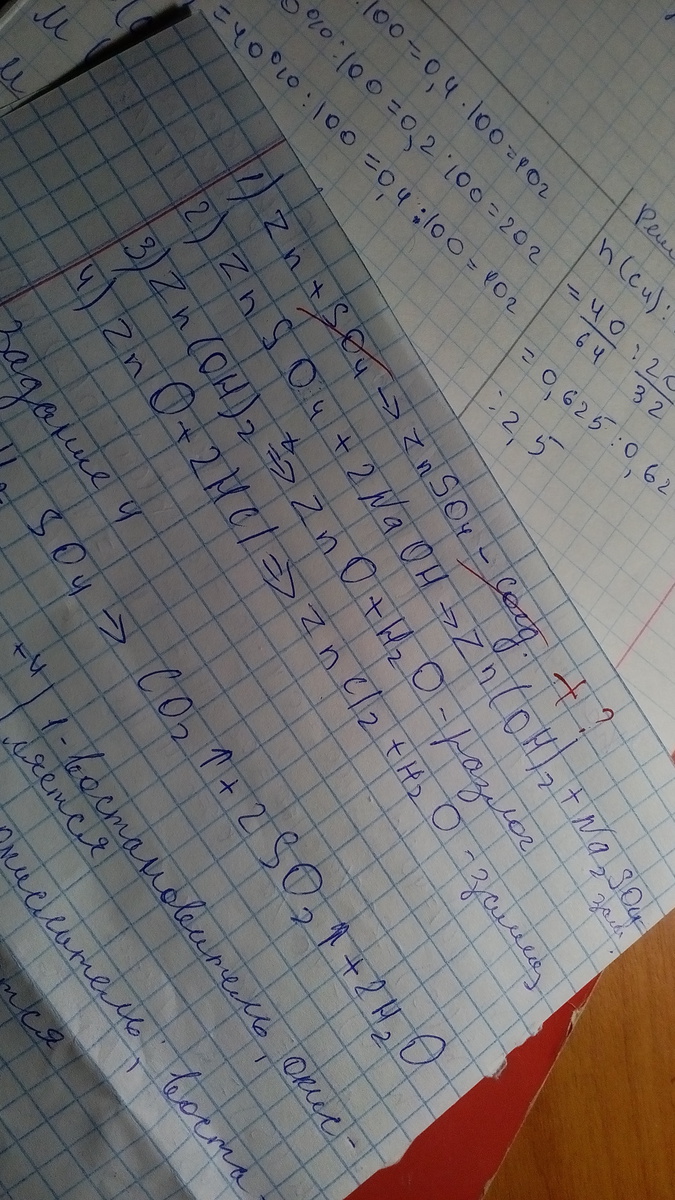 :100=0,4·100=40г
0%:100=0,2·100=20г
=40%:100=0,4:100=40г
n(Cu):
=40/64:20/32
=0,625:0,62
:2,5
1) Zn + SO4 → ZnSO4 - соед. + ?
2) ZnSO4 + 2NaOH → Zn(OH)2 + Na2SO4 - зам.
3) Zn(OH)2 ⇒ ZnO + H2O - разлог
4) ZnO + 2HCl ⇒ ZnCl2 + H2O - замещ
Задание 4
SO4 → CO2↑ + 2SO2↑ + 2H2O
+4) 1 - востановитель, окис-
ляется
окислитель; воста-
тся